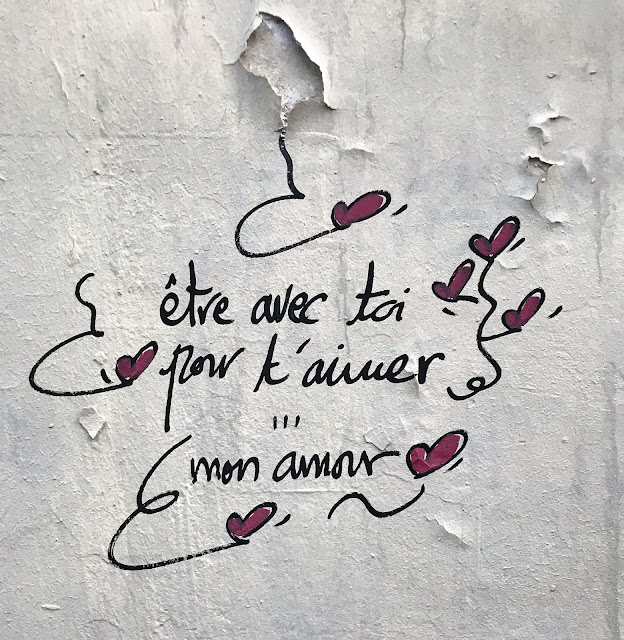 être avec toi
pour t'aimer
...
mon amour